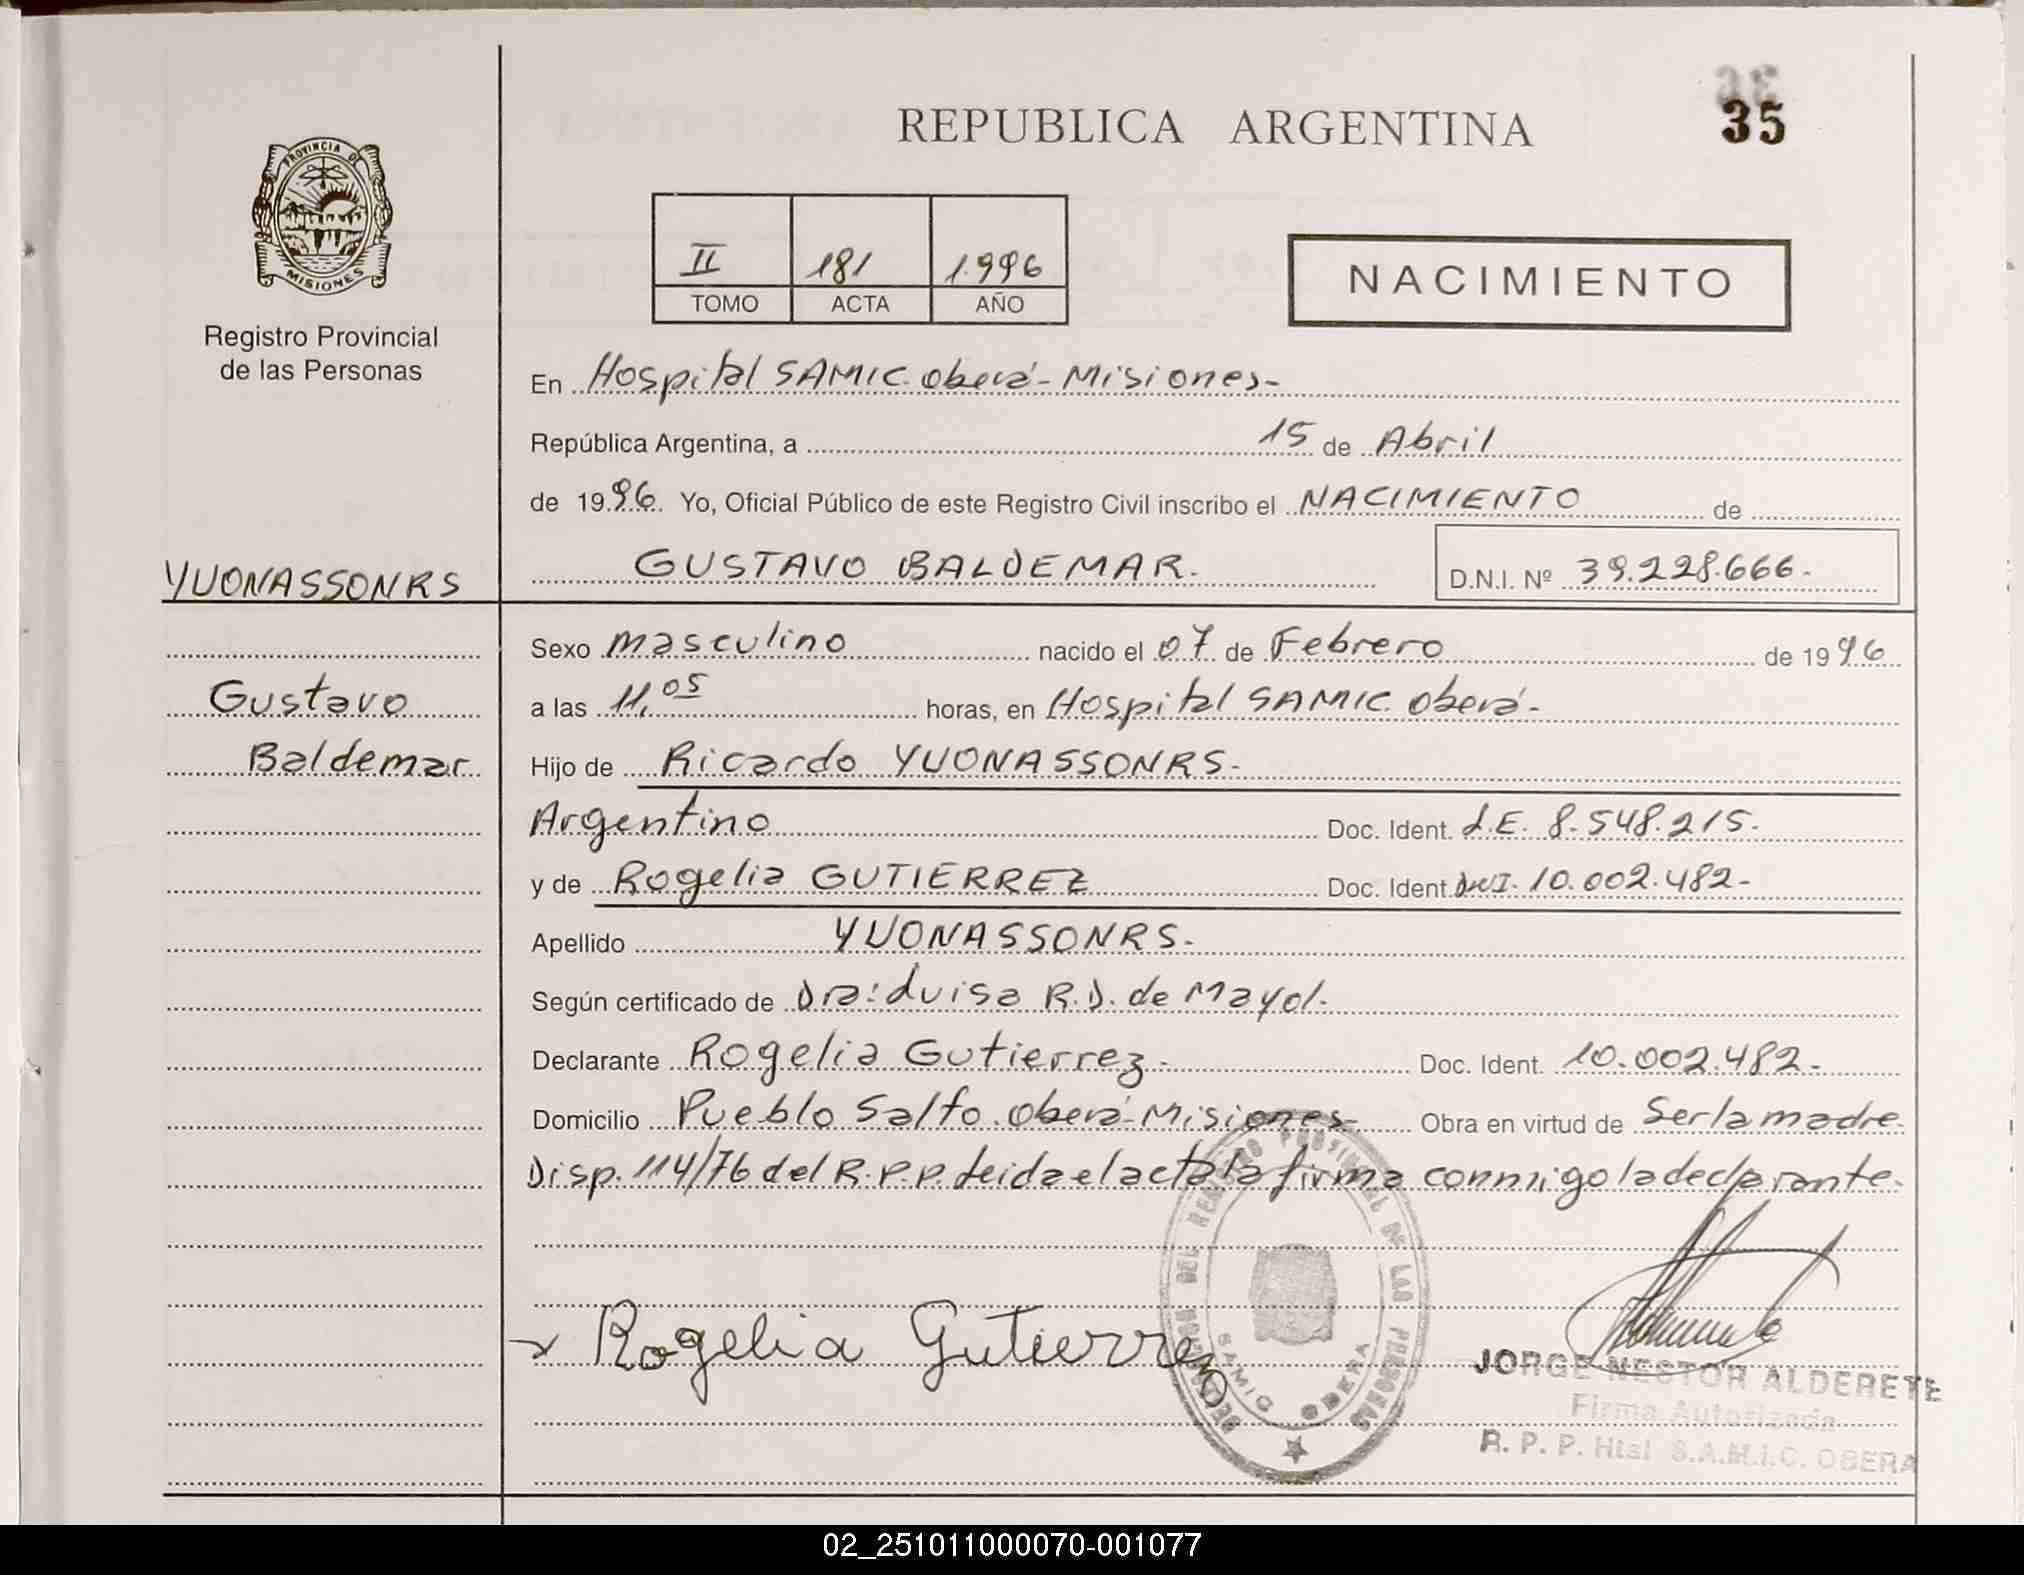 35
REPUBLICA ARGENTINA
PROVINCIA DE
MISIONES
Registro Provincial
de las Personas
II 181 1.996
TOMO ACTA AÑO
NACIMIENTO
En Hospital SAMIC. Oberá - Misiones -
República Argentina, a 15 de Abril
de 1996. Yo, Oficial Público de este Registro Civil inscribo el NACIMIENTO de
YUONASSONRS
GUSTAVO BALDEMAR. D.N.I. Nº 39.228.666.-
Sexo masculino nacido el 07 de Febrero de 1996
Gustavo
a las 11,05 horas, en Hospital SAMIC. Oberá -
Baldemar
Hijo de Ricardo YUONASSONRS -
Argentino Doc. Ident. L.E. 8.548.215.
y de Rogelia GUTIERREZ Doc. Ident. DNI. 10.002.482 -
Apellido YUONASSONRS.
Según certificado de Dra: Luisa R.D. de Mayol.
Declarante Rogelia Gutierrez - Doc. Ident. 10.002.482 -
Domicilio Pueblo Salto. Oberá - Misiones - Obra en virtud de Ser la madre.
Disp. 114/76 del R.P.P. Leida el acta la firma conmigo la declarante.
DEL REGISTRO PROVINCIAL DE LAS PERSONAS
SAMIC OBERA
Rogelia Gutierrez
JORGE NESTOR ALDERETE
Firma Autorizada
R. P. P. Htal S.A.M.I.C. OBERA
02_251011000070-001077